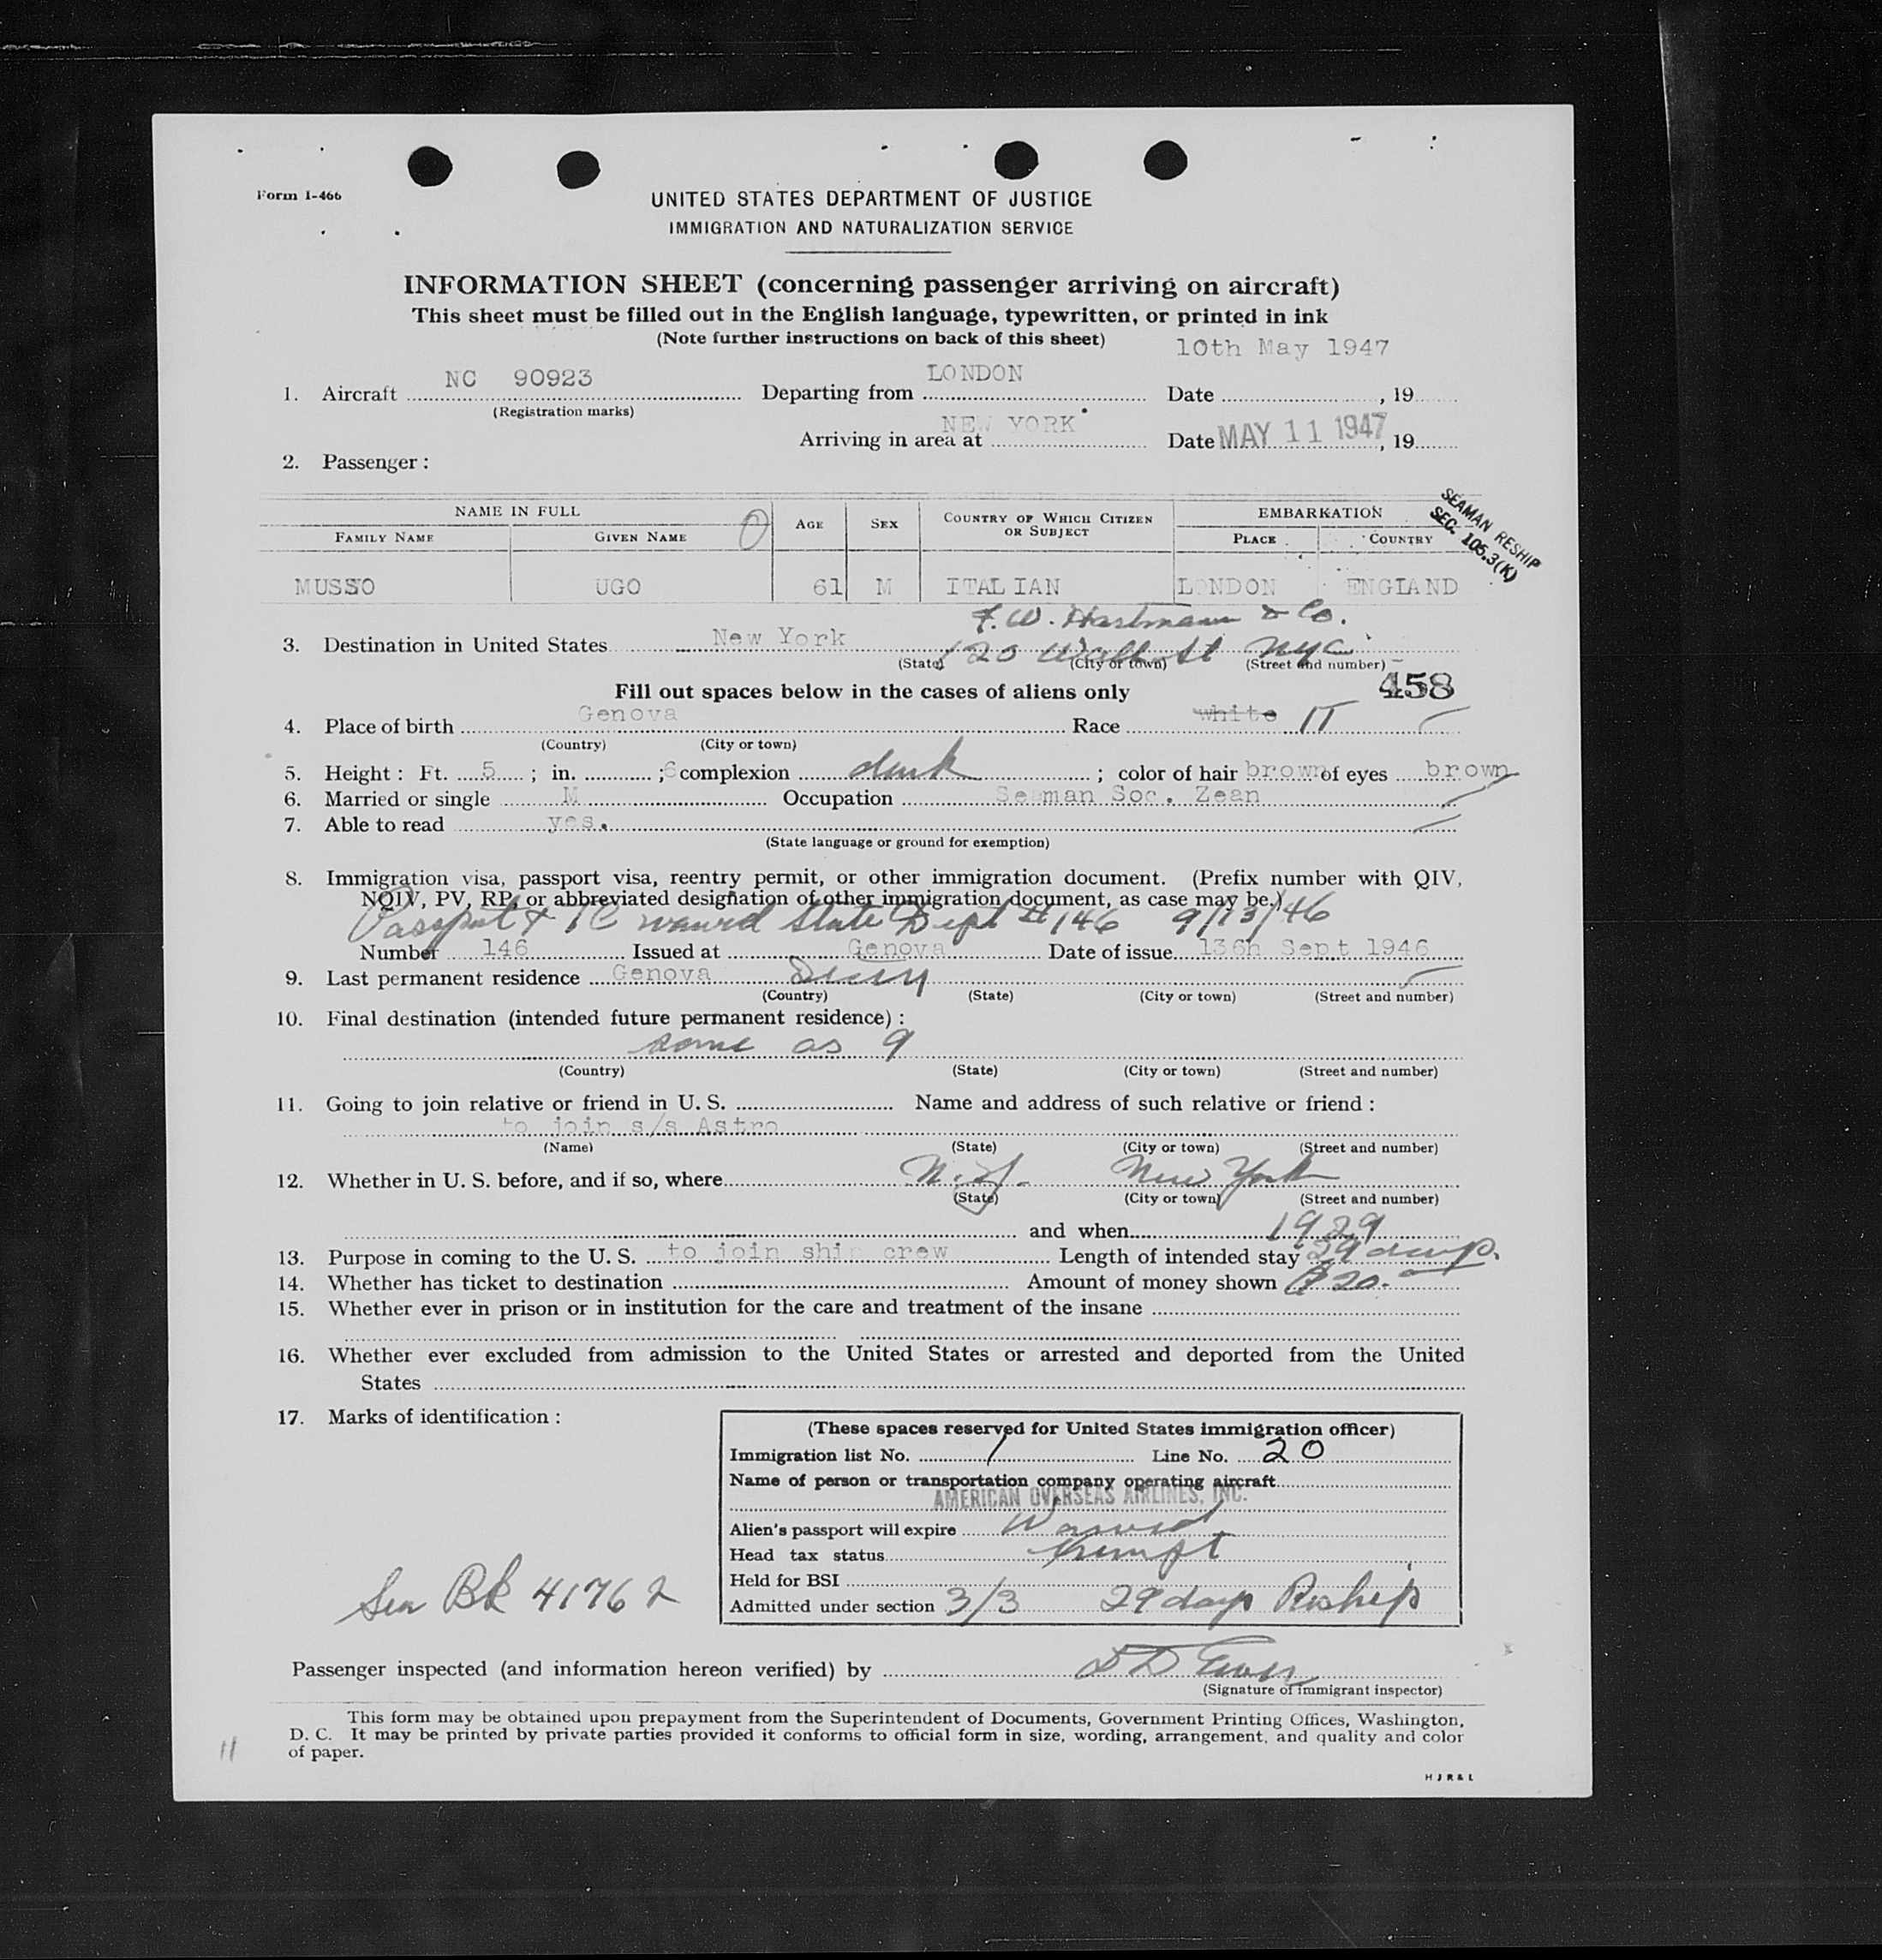 Form I-466
UNITED STATES DEPARTMENT OF JUSTICE
IMMIGRATION AND NATURALIZATION SERVICE
INFORMATION SHEET (concerning passenger arriving on aircraft)
This sheet must be filled out in the English language, typewritten, or printed in ink
(Note further instructions on back of this sheet)
10th May 1947
1. Aircraft NC 90923 Departing from LONDON Date , 19
(Registration marks)
Arriving in area at NEW YORK Date MAY 11 1947, 19
2. Passenger :
NAME IN FULL AGE SEX COUNTRY OF WHICH CITIZEN OR SUBJECT EMBARKATION
FAMILY NAME GIVEN NAME PLACE COUNTRY
SEAMAN RESHIP
SEC. 105.3(K)
MUSSO UGO 61 M ITALIAN LONDON ENGLAND
F. W. Hartmann & Co.
3. Destination in United States New York 120 Wall St NYC
(State) (City or town) (Street and number)
Fill out spaces below in the cases of aliens only 458
4. Place of birth Genova Race white IT
(Country) (City or town)
5. Height : Ft. 5 ; in. ;6 complexion dark ; color of hair brown of eyes brown
6. Married or single M Occupation Seaman Soc. Zean
7. Able to read yes.
(State language or ground for exemption)
8. Immigration visa, passport visa, reentry permit, or other immigration document. (Prefix number with QIV,
NQIV, PV, RP, or abbreviated designation of other immigration document, as case may be.)
Passport & TC waived State Dept # 146 9/13/46
Number 146 Issued at Genova Date of issue 136h Sept 1946
9. Last permanent residence Genova
(Country) (State) (City or town) (Street and number)
10. Final destination (intended future permanent residence) :
same as 9
(Country) (State) (City or town) (Street and number)
11. Going to join relative or friend in U. S. Name and address of such relative or friend :
to join s/s Astro
(Name) (State) (City or town) (Street and number)
12. Whether in U. S. before, and if so, where N.Y. New York
(State) (City or town) (Street and number)
and when 1929
13. Purpose in coming to the U. S. to join ship crew Length of intended stay 29 days.
14. Whether has ticket to destination Amount of money shown $20.
15. Whether ever in prison or in institution for the care and treatment of the insane
16. Whether ever excluded from admission to the United States or arrested and deported from the United
States
17. Marks of identification :
(These spaces reserved for United States immigration officer)
Immigration list No. 1 Line No. 20
Name of person or transportation company operating aircraft
AMERICAN OVERSEAS AIRLINES, INC.
Alien's passport will expire Waived
Head tax status Exempt
Held for BSI
Admitted under section 3/3 29 days Reship
Sea Bk 41762
Passenger inspected (and information hereon verified) by
(Signature of immigrant inspector)
This form may be obtained upon prepayment from the Superintendent of Documents, Government Printing Offices, Washington,
D. C. It may be printed by private parties provided it conforms to official form in size, wording, arrangement, and quality and color
of paper.
11
H J R & L